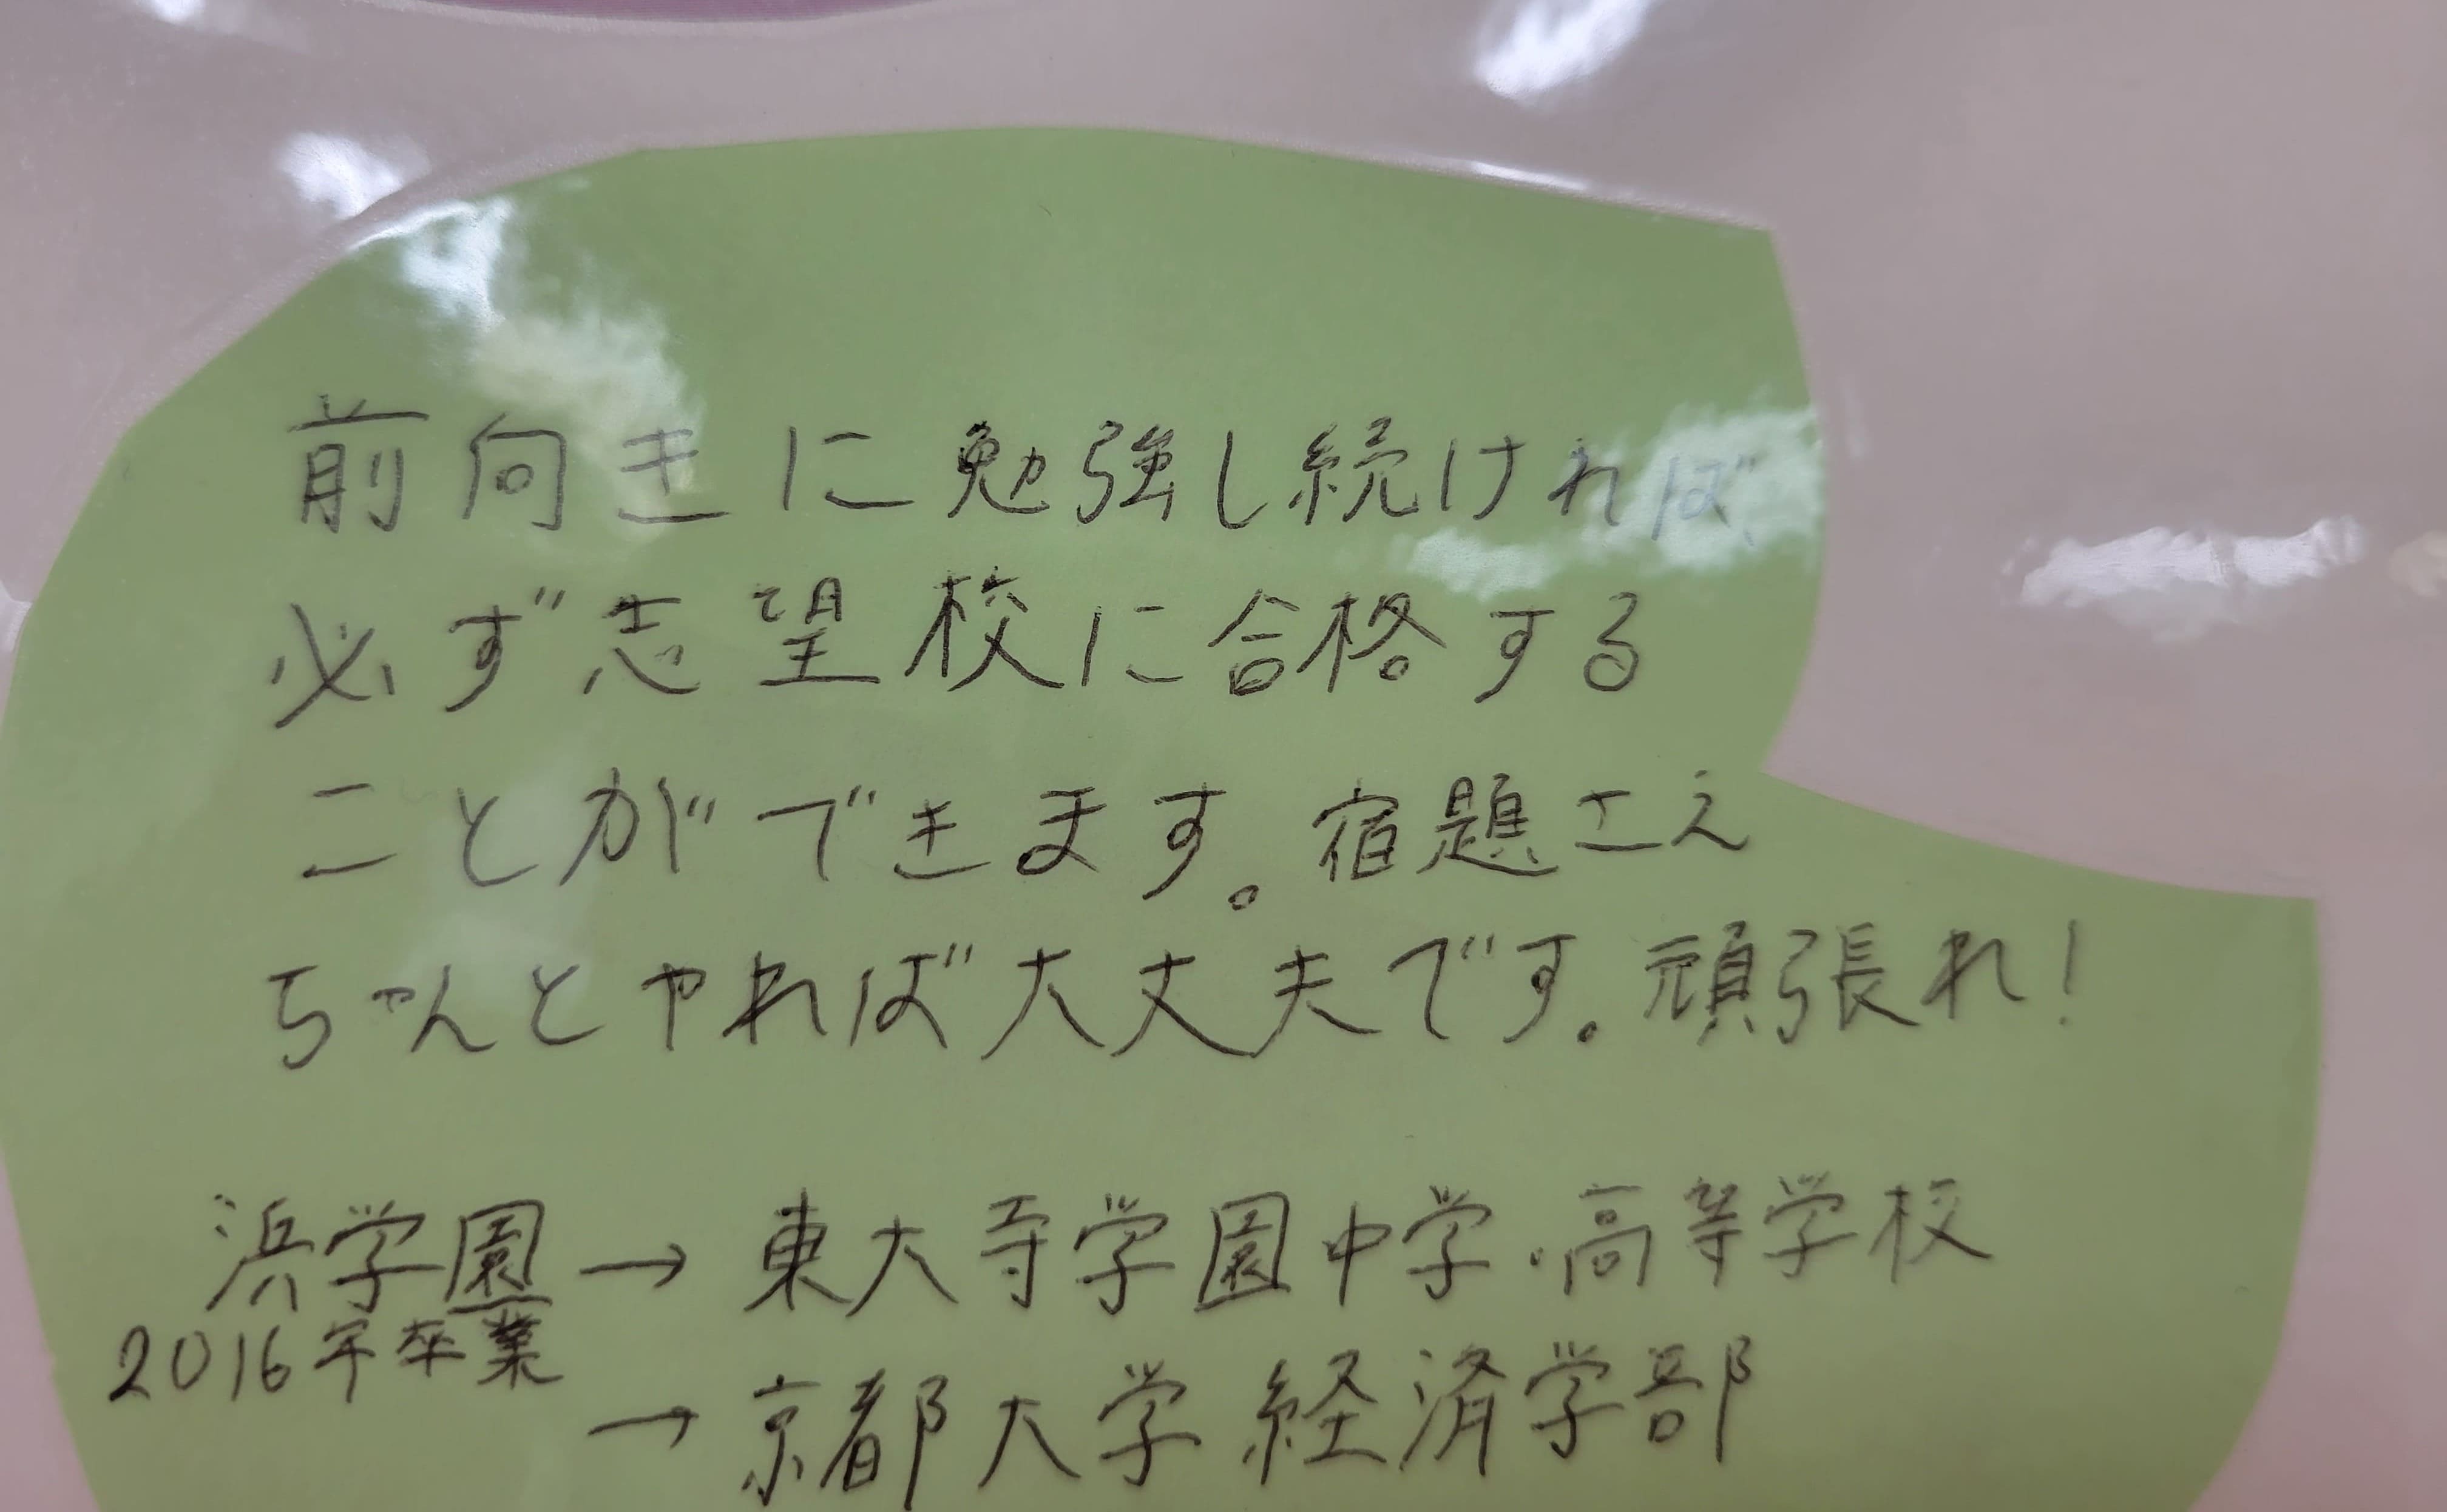 前向きに勉強し続ければ、
必ず志望校に合格する
ことができます。宿題さえ
ちゃんとやれば大丈夫です。頑張れ!
浜学園→東大寺学園中学・高等学校
2016年卒業
→京都大学経済学部